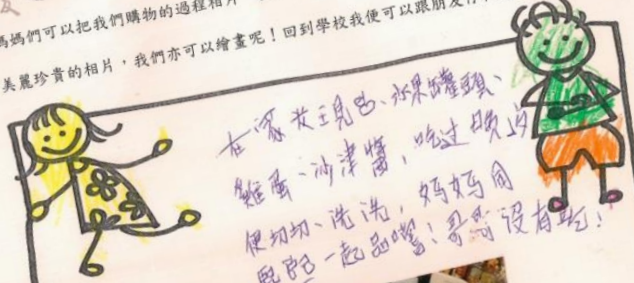 媽媽們可以把我們購物的過程相片
美麗珍貴的相片，我們亦可以繪畫呢！回到學校我便可以跟朋友
在家 、水果罐頭、
雞蛋、沙津醬，吃过晚
便切切、洗洗，媽媽同
一起品嚐！哥哥没有吃！